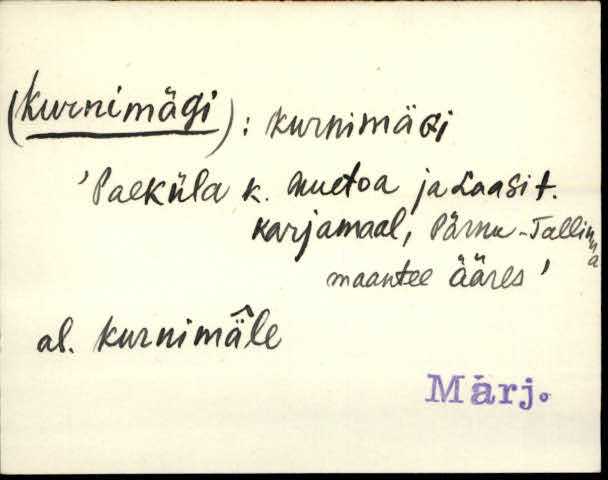 (Kurnimägi): kurnimäGi
'Paeküla k. Muetoa ja Laasi t.
karjamaal, Pärnu-Tallinna
maantee ääres'
al. kurnimä̂le
Märj.